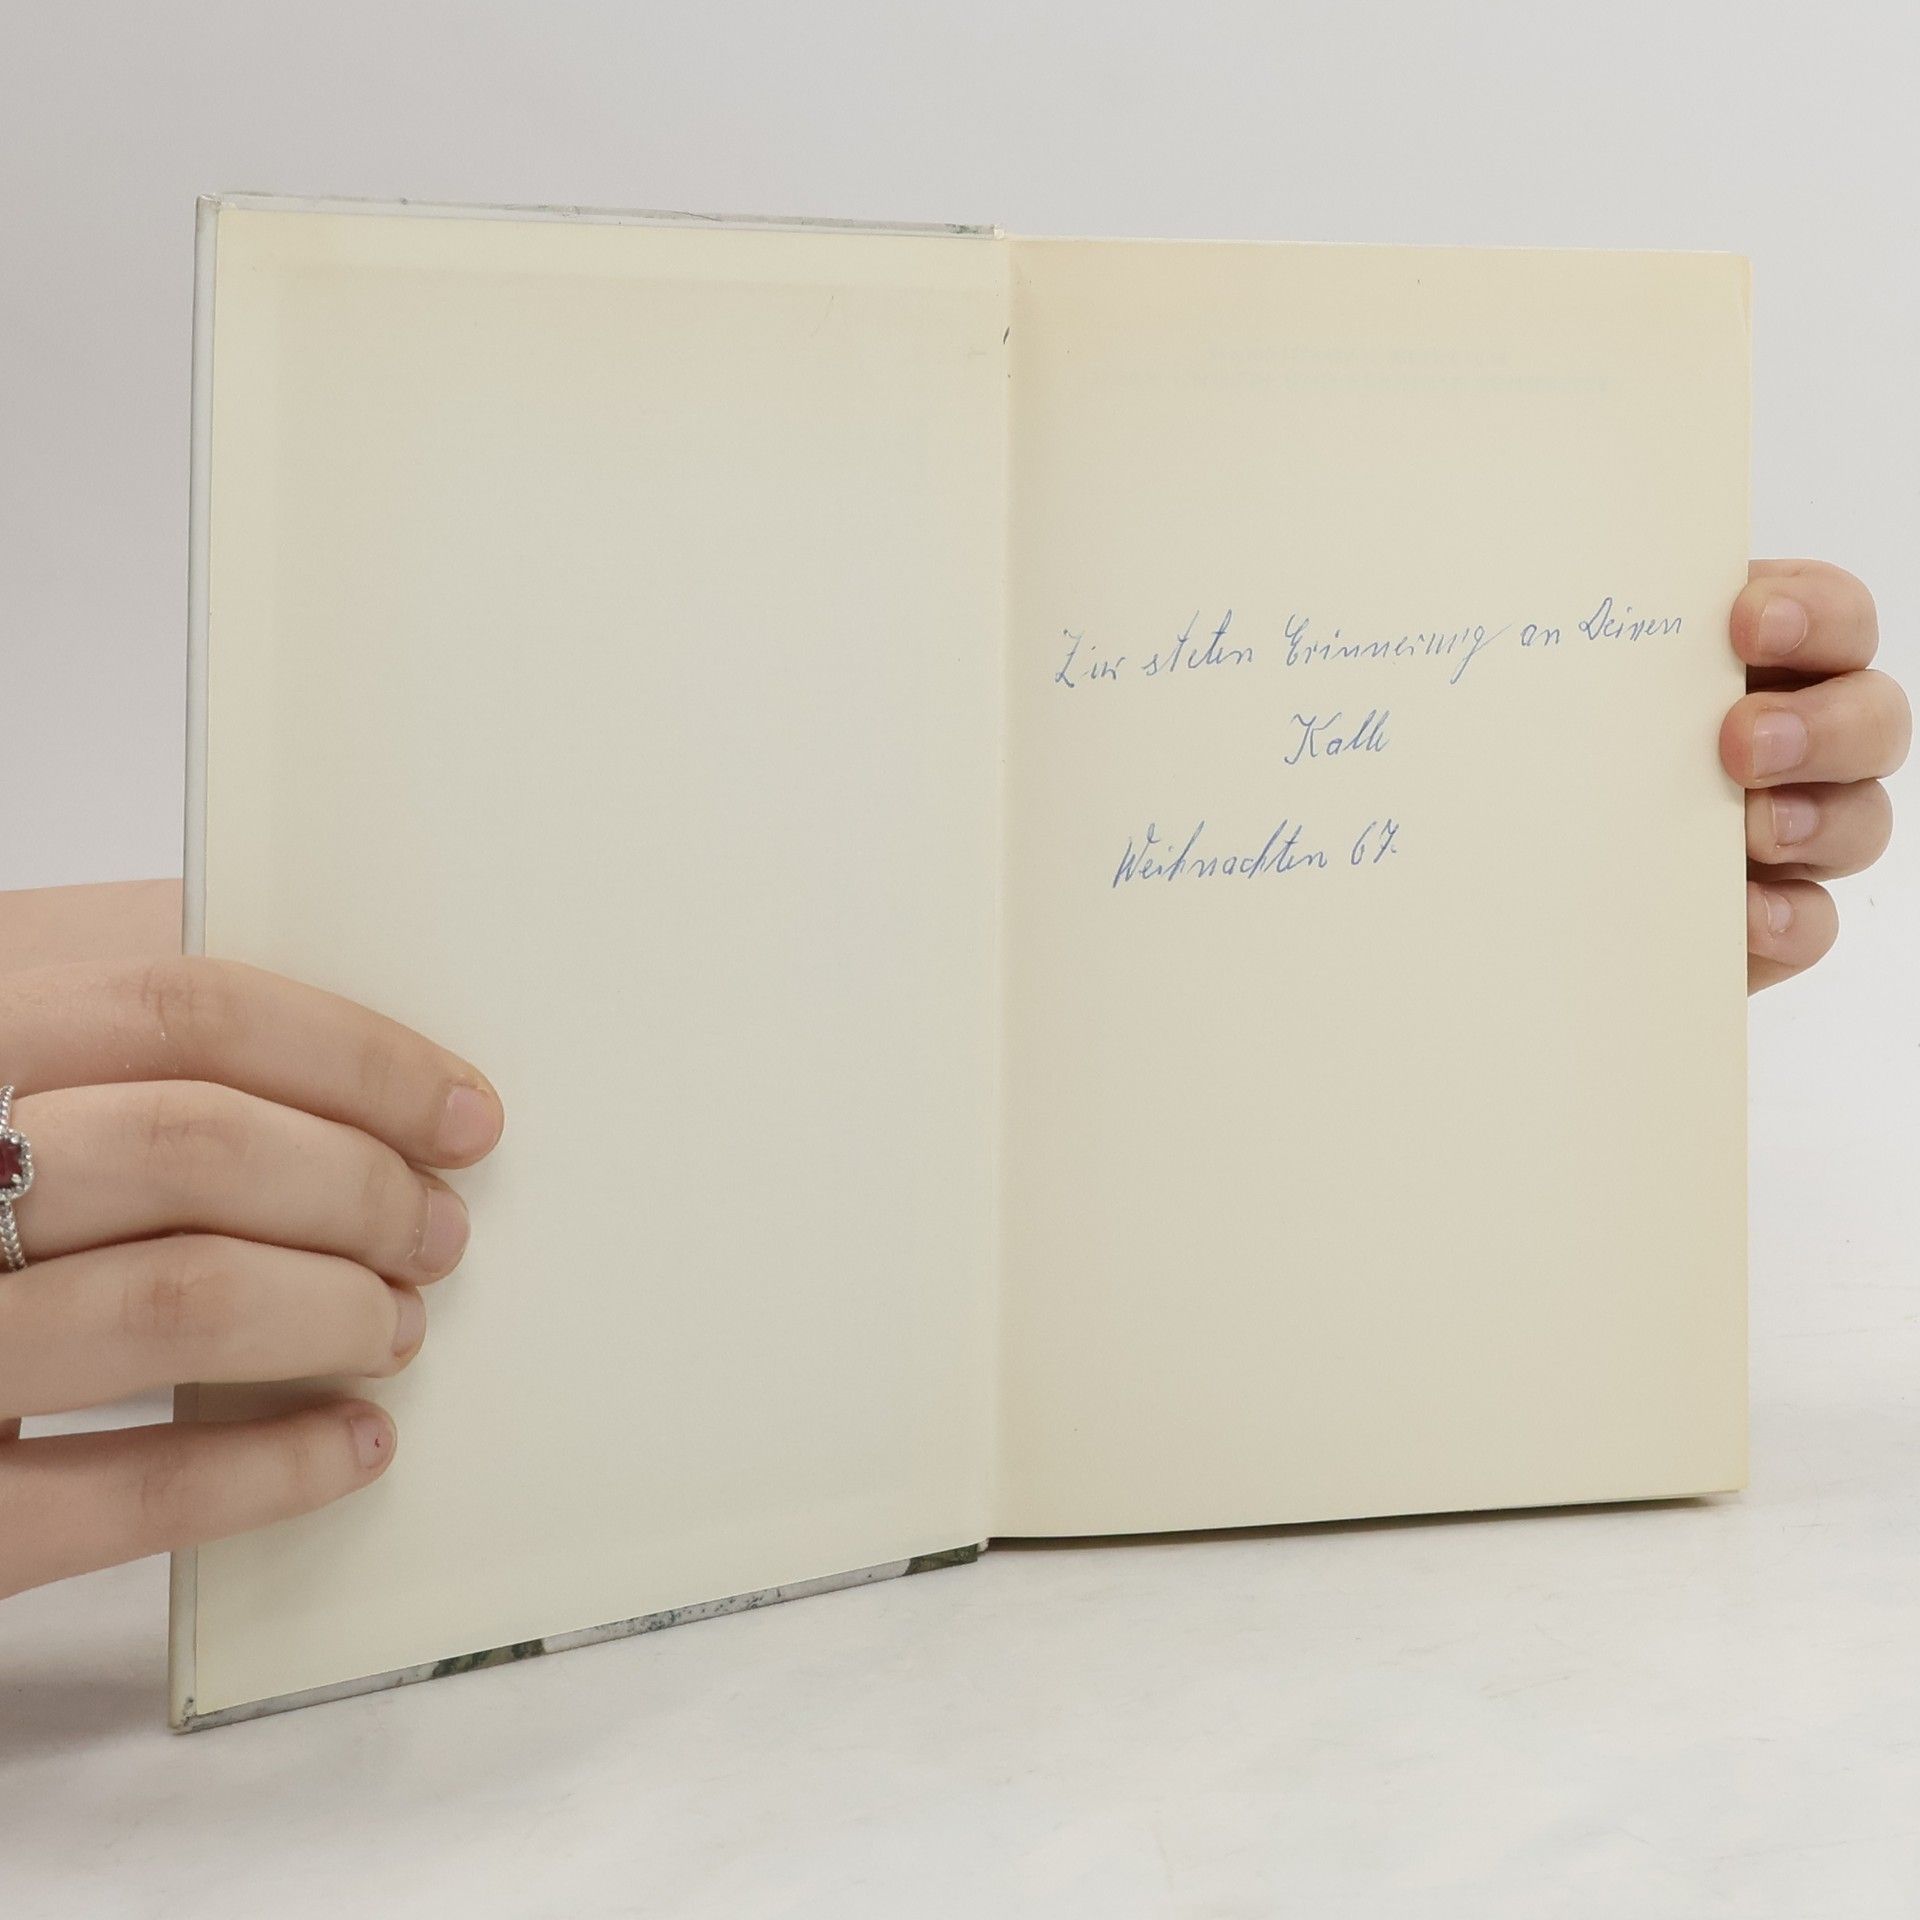 Zur steten Erinnerung an Deinen
Kalle
Weihnachten 67.